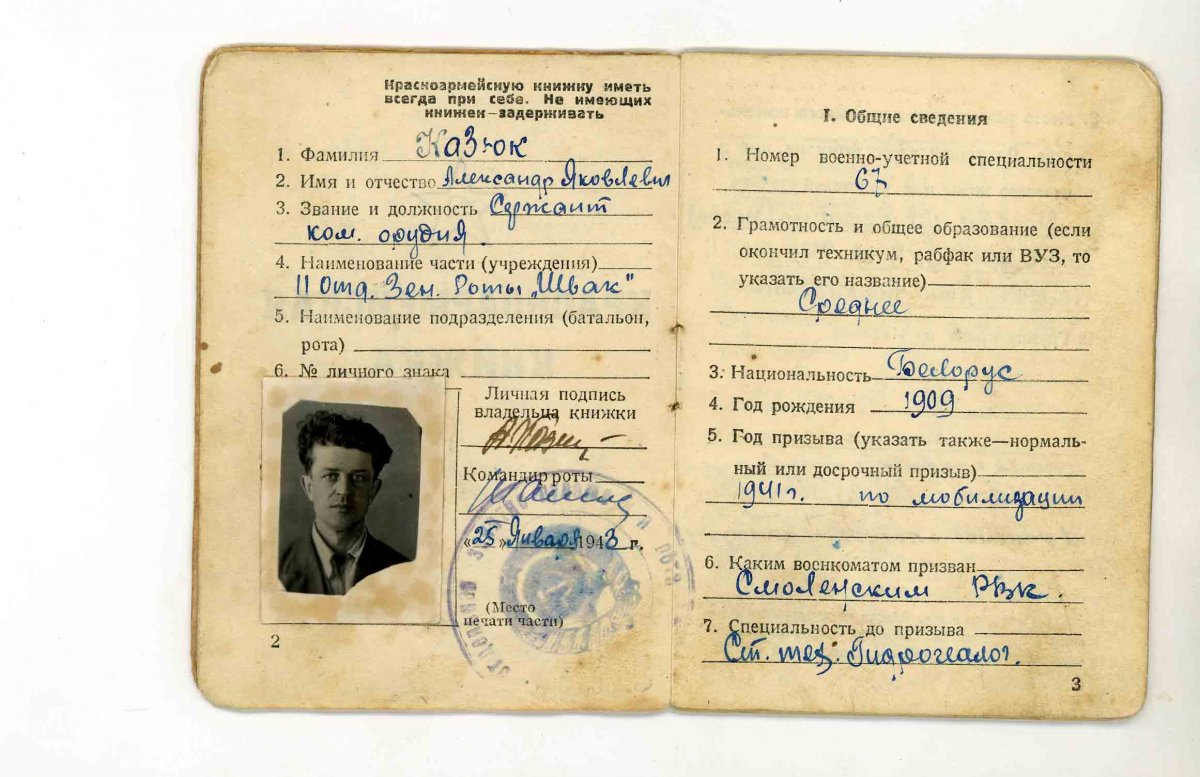 Красноармейскую книжку иметь
всегда при себе. Не имеющих
книжек—задерживать
1. Фамилия Казюк
2. Имя и отчество Александр Яковлевич
3. Звание и должность Сержант
ком. орудия.
4. Наименование части (учреждения)
11 Отд. Зен. Роты „Швак"
5. Наименование подразделения (батальон,
рота)
6. № личного знака
Личная подпись
владельца книжки
Командир роты
«25» Января 1943 г.
(Место
печати части)
2
I. Общие сведения
1. Номер военно-учетной специальности
67
2. Грамотность и общее образование (если
окончил техникум, рабфак или ВУЗ, то
указать его название)
Среднее
3. Национальность Белорус
4. Год рождения 1909
5. Год призыва (указать также—нормаль-
ный или досрочный призыв)
1941 г. по мобилизации
6. Каким военкоматом призван
Смоленским РВК.
7. Специальность до призыва
Ст. тех. Гидрогеолог.
3